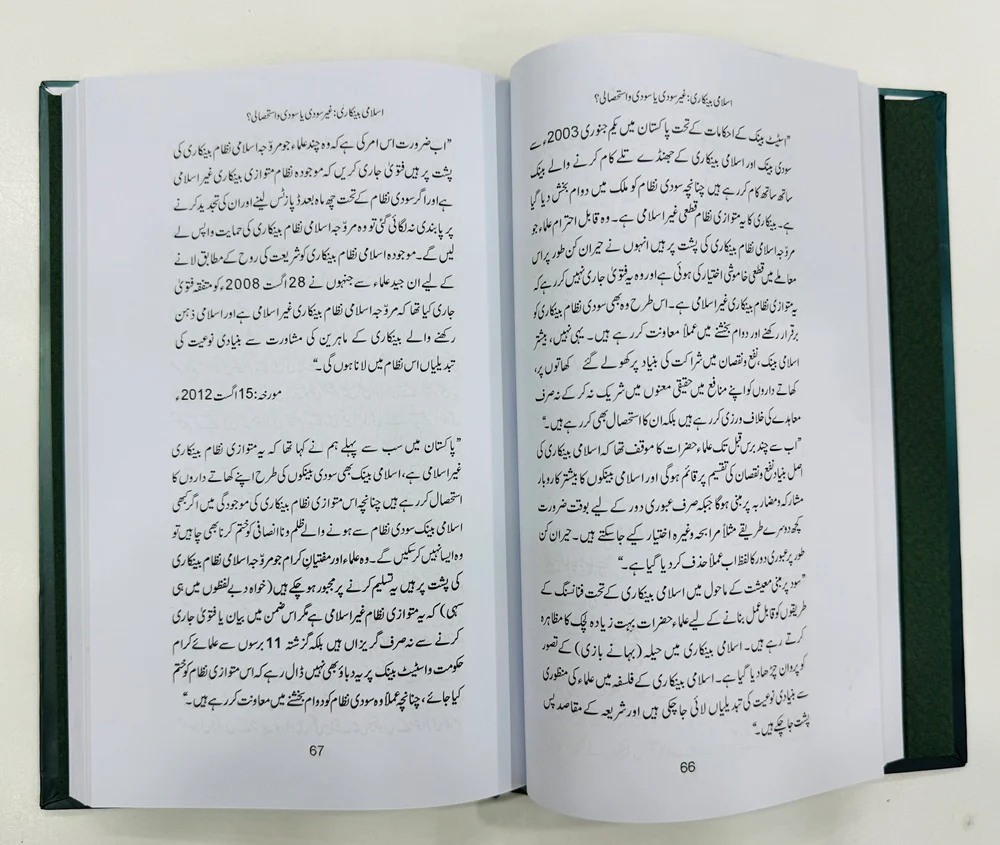 اسلامی بینکاری: غیر سودی یا سودی و استحصالی؟
”اسٹیٹ بینک کے احکامات کے تحت پاکستان میں یکم جنوری 2003ء سے
سودی بینک اور اسلامی بینکاری کے جھنڈے تلے کام کرنے والے بینک
ساتھ ساتھ کام کر رہے ہیں چنانچہ سودی نظام کو ملک میں دوام بخش دیا گیا
ہے۔ بینکاری کا یہ متوازی نظام قطعی غیر اسلامی ہے۔ وہ قابل احترام علماء جو
مروّجہ اسلامی نظام بینکاری کی پشت پر ہیں انہوں نے حیران کن طور پر اس
معاملے میں قطعی خاموشی اختیار کی ہوئی ہے اور وہ یہ فتویٰ جاری نہیں کر رہے کہ
یہ متوازی نظام بینکاری غیر اسلامی ہے۔ اس طرح وہ بھی سودی نظام بینکاری کو
برقرار رکھنے اور دوام بخشنے میں عملاً معاونت کر رہے ہیں۔ یہی نہیں، بیشتر
اسلامی بینک، نفع و نقصان میں شراکت کی بنیاد پر کھولے گئے کھاتوں پر،
کھاتے داروں کو اپنے منافع میں حقیقی معنوں میں شریک نہ کر کے نہ صرف
معاہدے کی خلاف ورزی کر رہے ہیں بلکہ ان کا استحصال بھی کر رہے ہیں۔“
”اب سے چند برس قبل تک علماء حضرات کا موقف تھا کہ اسلامی بینکاری کی
اصل بنیاد نفع و نقصان کی تقسیم پر قائم ہوگی اور اسلامی بینکوں کا بیشتر کاروبار
مشارکہ و مضاربہ پر مبنی ہوگا جبکہ صرف عبوری دور کے لیے بوقت ضرورت
کچھ دوسرے طریقے مثلاً مرابحہ وغیرہ اختیار کیے جا سکتے ہیں۔ حیران کن
طور پر عبوری دور کا لفظ اب عملاً حذف کر دیا گیا ہے۔“
”سود پر مبنی معیشت کے ماحول میں اسلامی بینکاری کے تحت فنانسنگ کے
طریقوں کو قابل عمل بنانے کے لیے علماء حضرات بہت زیادہ لچک کا مظاہرہ
کرتے رہے ہیں۔ اسلامی بینکاری میں حیلہ (بہانے بازی) کے تصور
کو پروان چڑھا دیا گیا ہے۔ اسلامی بینکاری کے فلسفہ میں علماء کی منظوری
سے بنیادی نوعیت کی تبدیلیاں لائی جا چکی ہیں اور شریعہ کے مقاصد پس
پشت جا چکے ہیں۔“
66
اسلامی بینکاری: غیر سودی یا سودی و استحصالی؟
”اب ضرورت اس امر کی ہے کہ وہ چند علماء جو مروّجہ اسلامی نظام بینکاری کی
پشت پر ہیں فتویٰ جاری کریں کہ موجودہ نظام متوازی بینکاری غیر اسلامی
ہے اور اگر سودی نظام کے تحت چھ ماہ بعد ڈپازٹس لینے اور ان کی تجدید کرنے
پر پابندی نہ لگائی گئی تو وہ مروّجہ اسلامی نظام بینکاری کی حمایت واپس لے
لیں گے۔ موجودہ اسلامی نظام بینکاری کو شریعت کی روح کے مطابق لانے
کے لیے ان جید علماء سے جنہوں نے 28 اگست 2008ء کو متفقہ فتویٰ
جاری کیا تھا کہ مروّجہ اسلامی بینکاری غیر اسلامی ہے اور اسلامی ذہن
رکھنے والے بینکاری کے ماہرین کی مشاورت سے بنیادی نوعیت کی
تبدیلیاں اس نظام میں لانا ہوں گی۔“
مورخہ: 15 اگست 2012ء
”پاکستان میں سب سے پہلے ہم نے کہا تھا کہ یہ متوازی نظام بینکاری
غیر اسلامی ہے، اسلامی بینک بھی سودی بینکوں کی طرح اپنے کھاتے داروں کا
استحصال کر رہے ہیں چنانچہ اس متوازی نظام بینکاری کی موجودگی میں اگر کبھی
اسلامی بینک سودی نظام سے ہونے والے ظلم و ناانصافی کو ختم کرنا بھی چاہیں تو
وہ ایسا نہیں کر سکیں گے۔ وہ علماء اور مفتیان کرام جو مروّجہ اسلامی نظام بینکاری
کی پشت پر ہیں یہ تسلیم کرنے پر مجبور ہو چکے ہیں (خواہ دبے لفظوں میں ہی
سہی) کہ یہ متوازی نظام غیر اسلامی ہے مگر اس ضمن میں بیان یا فتویٰ جاری
کرنے سے نہ صرف گریزاں ہیں بلکہ گزشتہ 11 برسوں سے علمائے کرام
حکومت و اسٹیٹ بینک پر یہ دباؤ بھی نہیں ڈال رہے کہ اس متوازی نظام کو ختم
کیا جائے، چنانچہ عملاً وہ سودی نظام کو دوام بخشنے میں معاونت کر رہے ہیں۔“
67